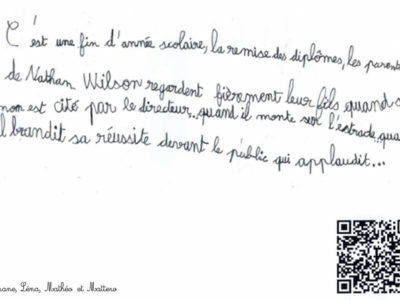 C'est une fin d'année scolaire, la remise des diplômes, les parents
de Nathan Wilson regardent fièrement leur fils quand
nom est cité par le directeur... quand il monte sur l'estrade,
brandit sa réussite devant le public qui applaudit...
Léna, Mathéo et Matteo